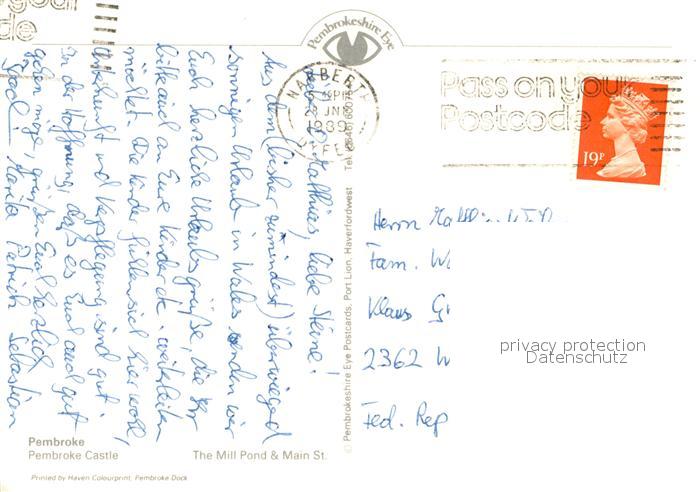 Pembrokeshire Eye
Pass on your
Postcode
NARBERTH
1989
DYFED
19P
Lieber Matthias, liebe Steine!
Aus dem (bisher zumindest) überwiegend
sonnigen Urlaub in Wales senden wir
Euch herzliche Urlaubsgrüße, die Ihr
bitte auch an Eure Kinder etc. weiterleiten
möchtet. Die Kinder fühlen sich hier wohl,
Unterkunft und Verpflegung sind gut.
In der Hoffnung, daß es Euch auch gut
gehen möge, grüßen Euch herzlich
Marita Patrick Sebastian
© Pembrokeshire Eye Postcards, Port Lion, Haverfordwest Tel.
Herrn
Fam. W
Klaus G
2362 W
Fed. Rep
privacy protection
Datenschutz
Pembroke
Pembroke Castle The Mill Pond & Main St.
Printed by Haven Colourprint, Pembroke Dock